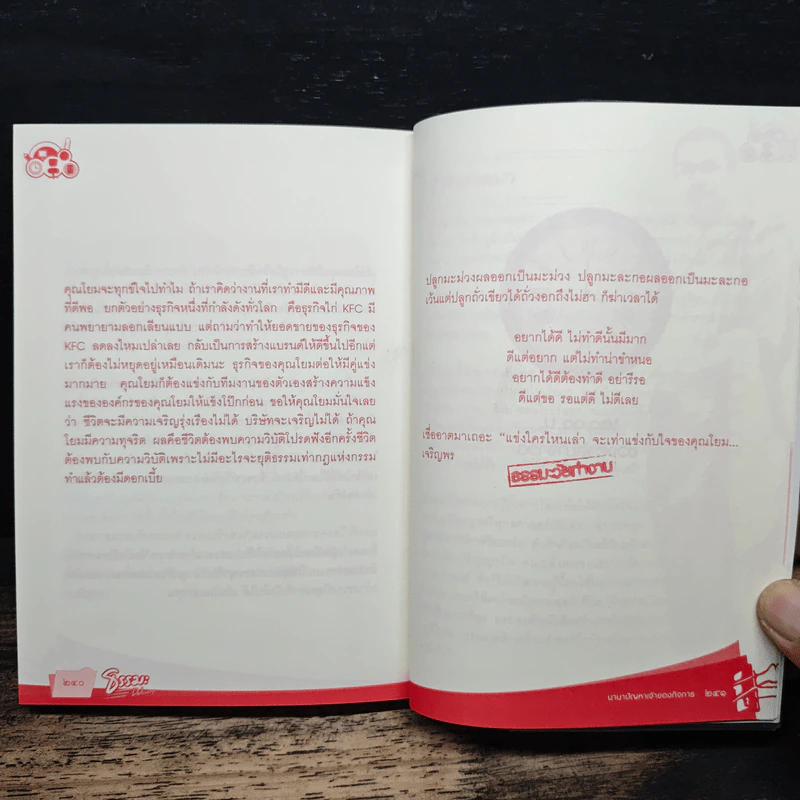 คุณโยมจะทุกข์ใจไปทำไม ถ้าเราคิดว่างานที่เราทำมีดีและมีคุณภาพ
ที่ดีพอ ยกตัวอย่างธุรกิจหนึ่งที่กำลังดังทั่วโลก คือธุรกิจไก่ KFC มี
คนพยายามลอกเลียนแบบ แต่ถามว่าทำให้ยอดขายของธุรกิจของ
KFC ลดลงไหมเปล่าเลย กลับเป็นการสร้างแบรนด์ให้ดีขึ้นไปอีกแต่
เราก็ต้องไม่หยุดอยู่เหมือนเดิมนะ ธุรกิจของคุณโยมต่อให้มีคู่แข่ง
มากมาย คุณโยมก็ต้องแข่งกับทีมงานของตัวเองสร้างความแข็ง
แรงขององค์กรของคุณโยมให้แข็งโป๊กก่อน ขอให้คุณโยมมั่นใจเลย
ว่า ชีวิตจะมีความเจริญรุ่งเรืองไม่ได้ บริษัทจะเจริญไม่ได้ ถ้าคุณ
โยมมีความทุจริต ผลคือชีวิตต้องพบความวิบัติโปรดฟังอีกครั้งชีวิต
ต้องพบกับความวิบัติเพราะไม่มีอะไรจะยุติธรรมเท่ากฎแห่งกรรม
ทำแล้วต้องมีดอกเบี้ย
๒๔๐
ธรรมะ
ปลูกมะม่วงผลออกเป็นมะม่วง ปลูกมะละกอผลออกเป็นมะละกอ
เว้นแต่ปลูกถั่วเขียวได้ถั่วงอกถึงไม่ฮา ก็ฆ่าเวลาได้
อยากได้ดี ไม่ทำดีนั้นมีมาก
ดีแต่อยาก แต่ไม่ทำน่าขำหนอ
อยากได้ดีต้องทำดี อย่ารีรอ
ดีแต่ขอ รอแต่ดี ไม่ดีเลย
เชื่ออาตมาเถอะ "แข่งใครไหนเล่า จะเท่าแข่งกับใจของคุณโยม...
เจริญพร
ธรรมะวัยทำงาน
นานาปัญหาเจ้าของกิจการ ๒๔๑